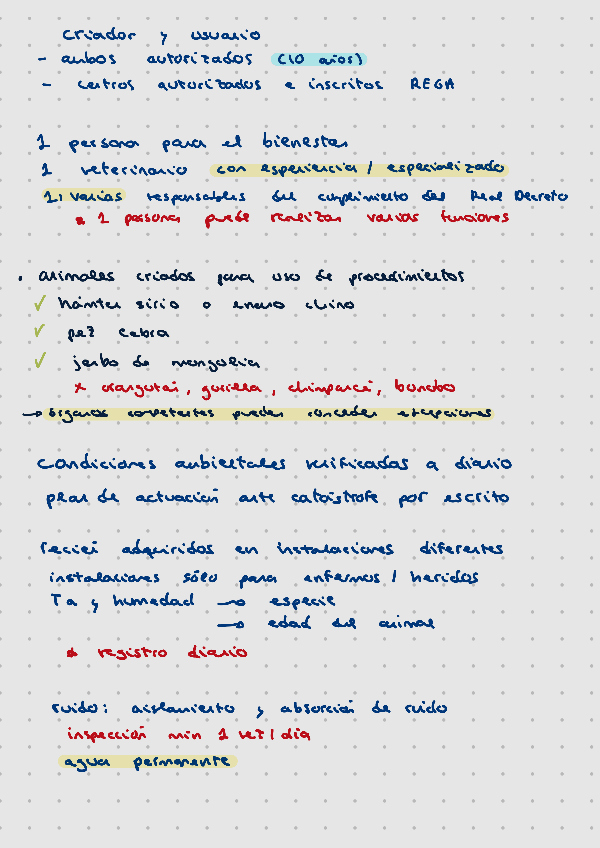 criador y usuario
- ambos autorizados (10 años)
- centros autorizados e inscritos REGA
1 persona para el bienestar
1 veterinario con experiencia / especializado
1, varias responsables del cumplimiento del Real Decreto
* 1 persona puede realizar varias funciones
. animales criados para uso de procedimientos
✓ hámster sirio o enano chino
✓ pez cebra
✓ jerbo de mongolia
x orangután, gorila, chimpancé, bonobo
→ órganos competentes pueden conceder excepciones
condiciones ambientales verificadas a diario
plan de actuación ante catástrofe por escrito
recién adquiridos en instalaciones diferentes
instalaciones sólo para enfermos / heridos
Ta y humedad → especie
→ edad del animal
* registro diario
ruido: aislamiento y absorción de ruido
inspección min 1 vez / día
agua permanente